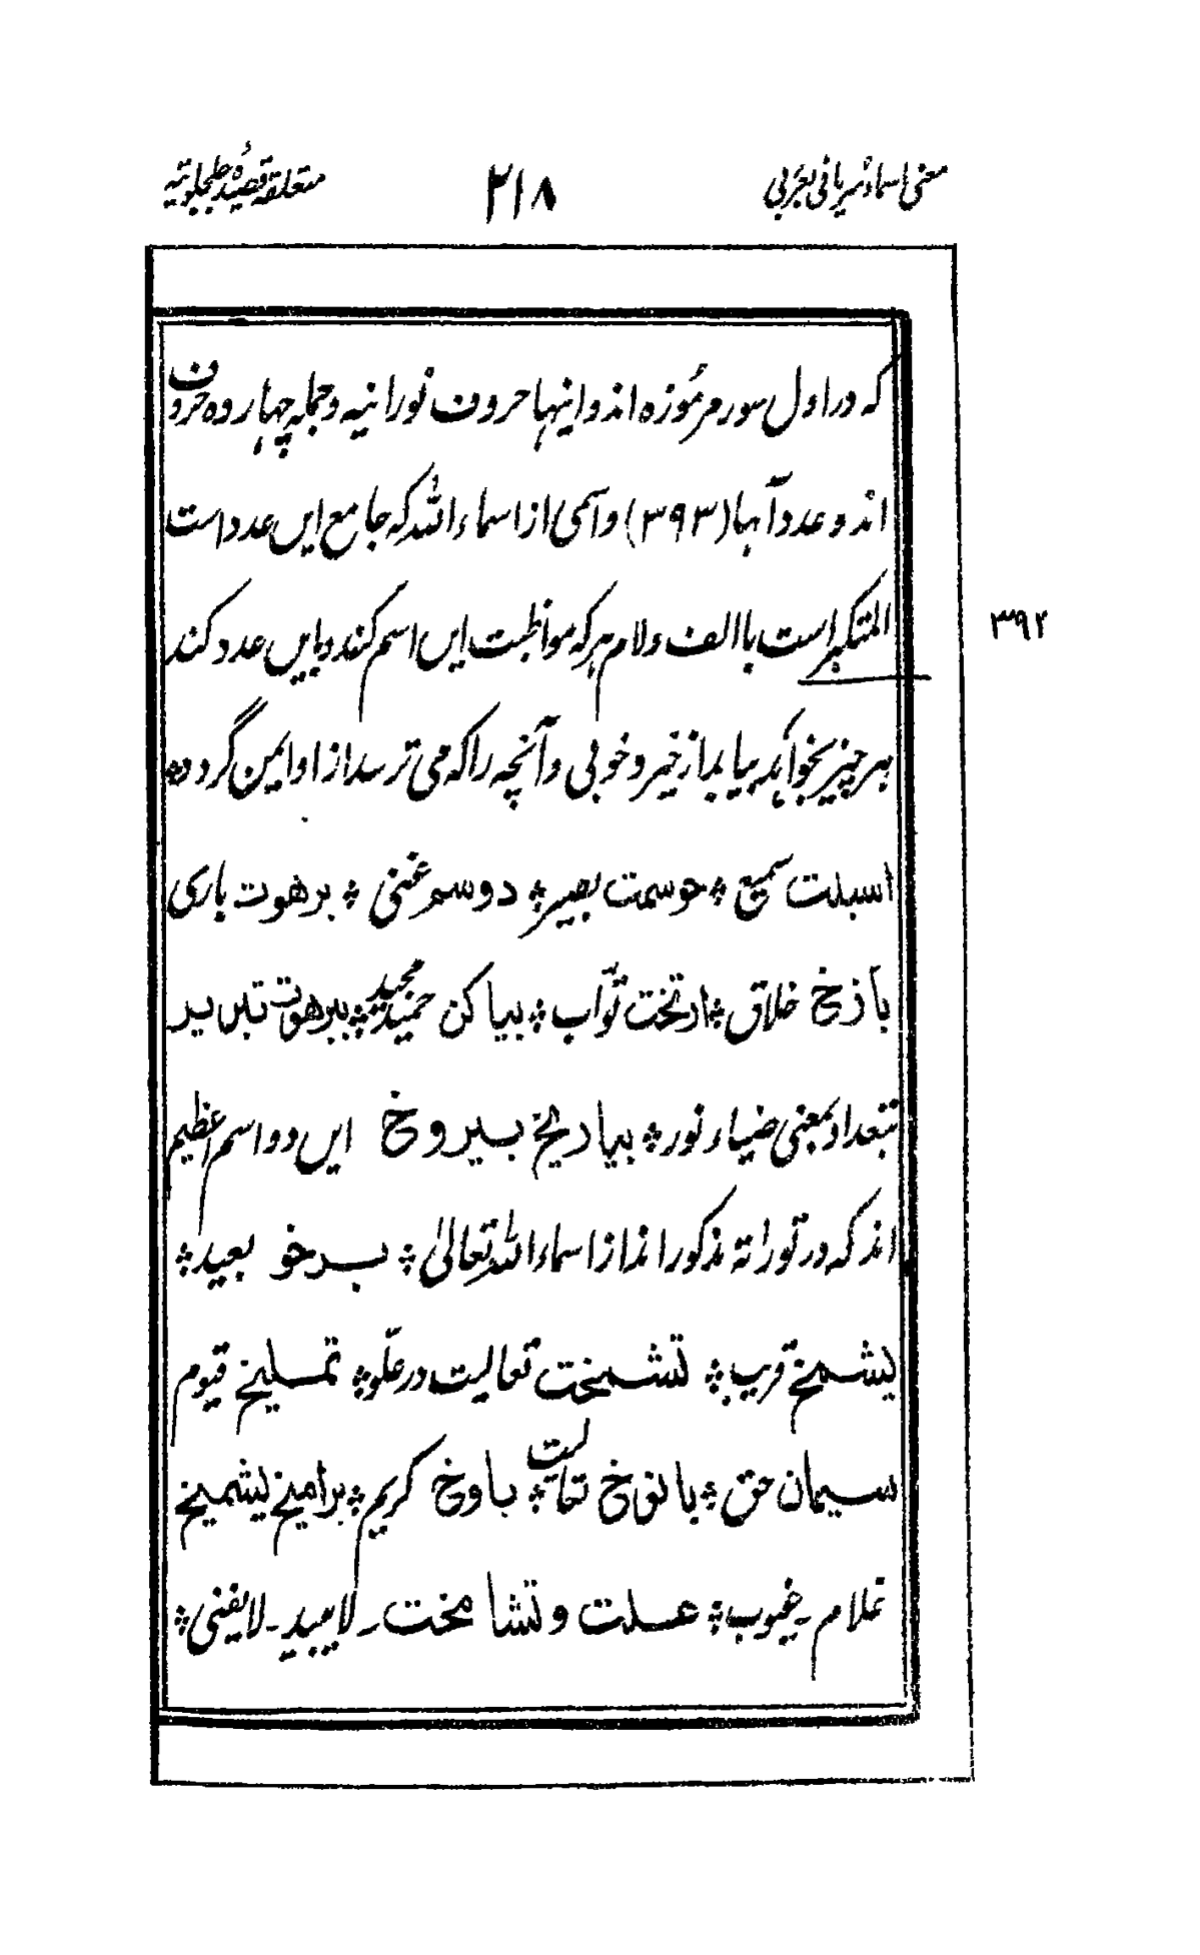 معنی اسماء سریانی بعربی ۲۱۸ متعلقہ قصیدہ جلجلوتیہ
که در اول سور مرموزه اند و اینها حروف نورانیه و جمله چهارده حروف
اند و عدد آنها (۳۹۳) و اسمی از اسماء الله که جامع این عدد است
المتکبر است با الف و لام هر که مواظبت این اسم کند و باین عدد کند
۳۹۲
هر چیز بخواهد بیابد از خیر و خوبی و آنچه را که می ترسد از او ایمن گردد
اسبلت سمیع ؞ حوسمت بصیر ؞ دوسم غنی ؞ برهوت باری
بازخ خلاق ؞ ارتخت توّاب ؞ بیاکن حمید مجید ؞ ببرهوت تبریر
تتعداد بمعنی ضیاء نور ؞ بیادیخ بیروخ این دو اسم اعظیم
اند که در توراة مذکور اند از اسماء الله تعالیٰ ؞ برخو بعید ؞
یشمخ قریب ؞ تشمخت تعالیت در علّو ؞ تملیخ قیوم
سیمان حق ؞ بانوخ تعالیت ؞ باوخ کریم ؞ برامیخ یشمیخ
علام - غیوب ؞ علت و تشامخت - لایبید - لایفنی ؞